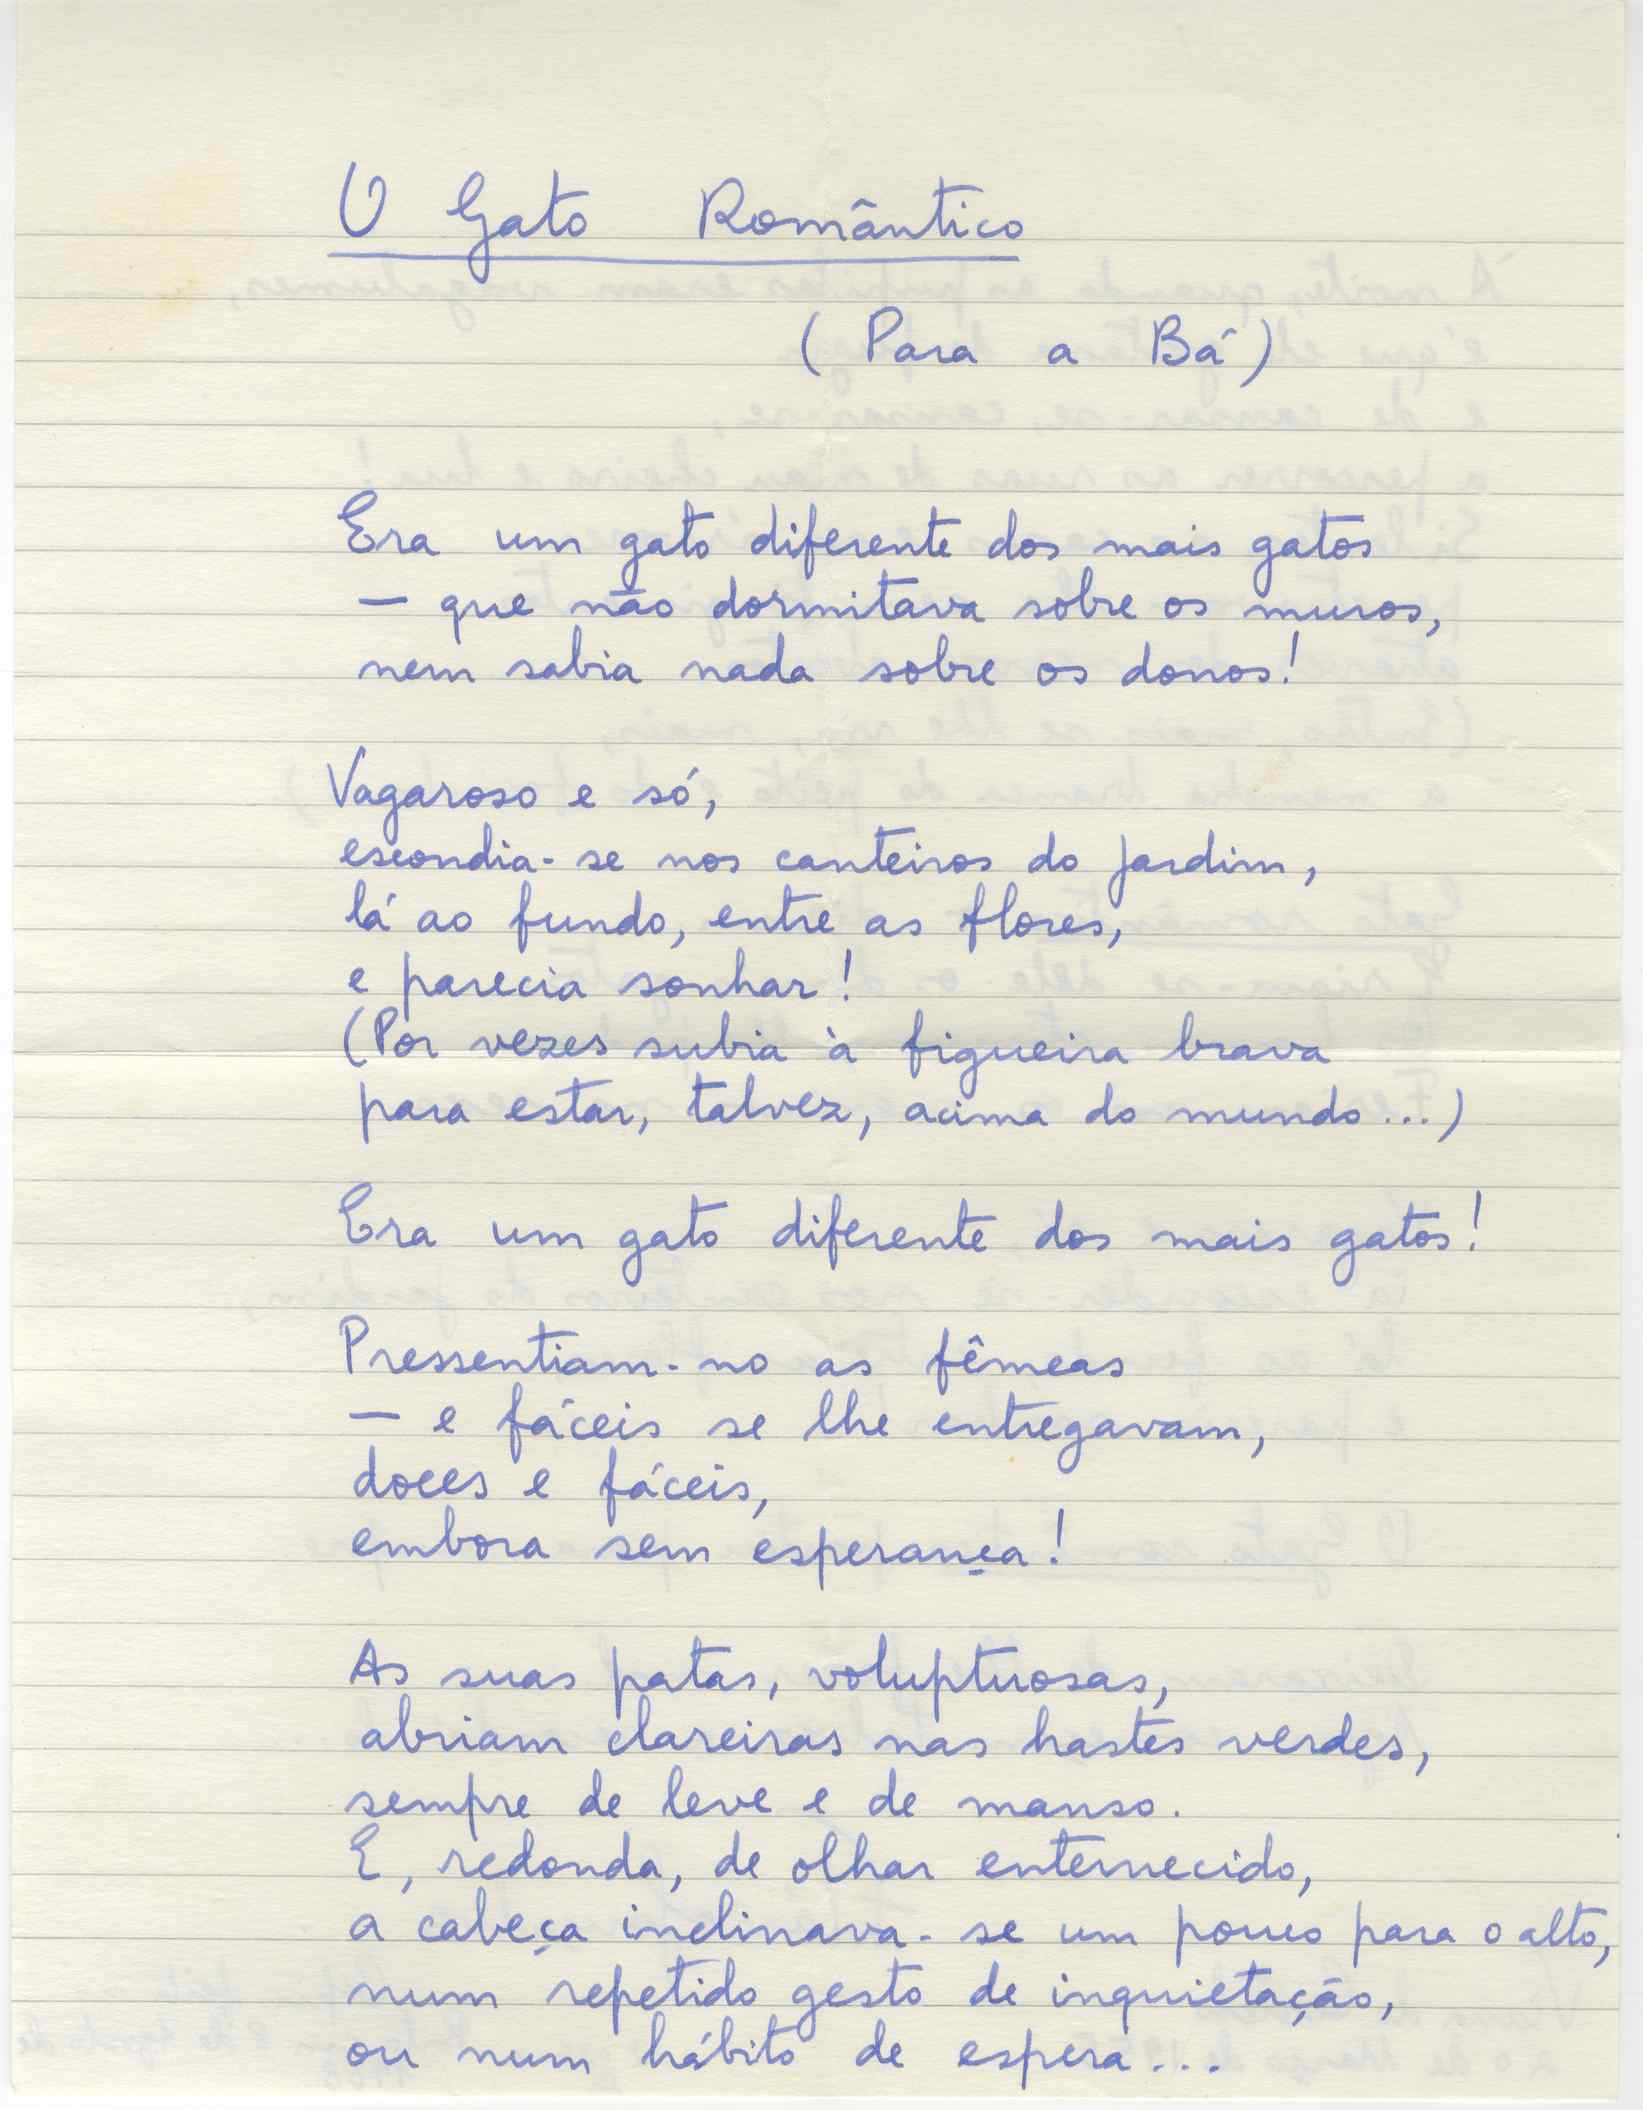 O Gato Romântico
(Para a Bá)
Era um gato diferente dos mais gatos
— que não dormitava sobre os muros,
nem sabia nada sobre os donos!
Vagaroso e só,
escondia-se nos canteiros do jardim,
lá ao fundo, entre as flores,
e parecia sonhar!
(Por vezes subia à figueira brava
para estar, talvez, acima do mundo...)
Era um gato diferente dos mais gatos!
Pressentiam-no as fêmeas
— e fáceis se lhe entregavam,
doces e fáceis,
embora sem esperança!
As suas patas, voluptuosas,
abriam clareiras nas hastes verdes,
sempre de leve e de manso.
E, redonda, de olhar enternecido,
a cabeça inclinava-se um pouco para o alto,
num repetido gesto de inquietação,
ou num hábito de espera...